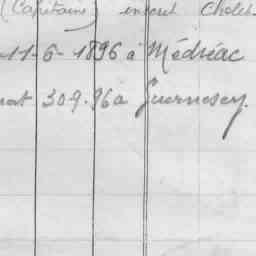 (Capitaine) Cholet
11-6-1896 a Médréac
30.9.96 a Guernesey.